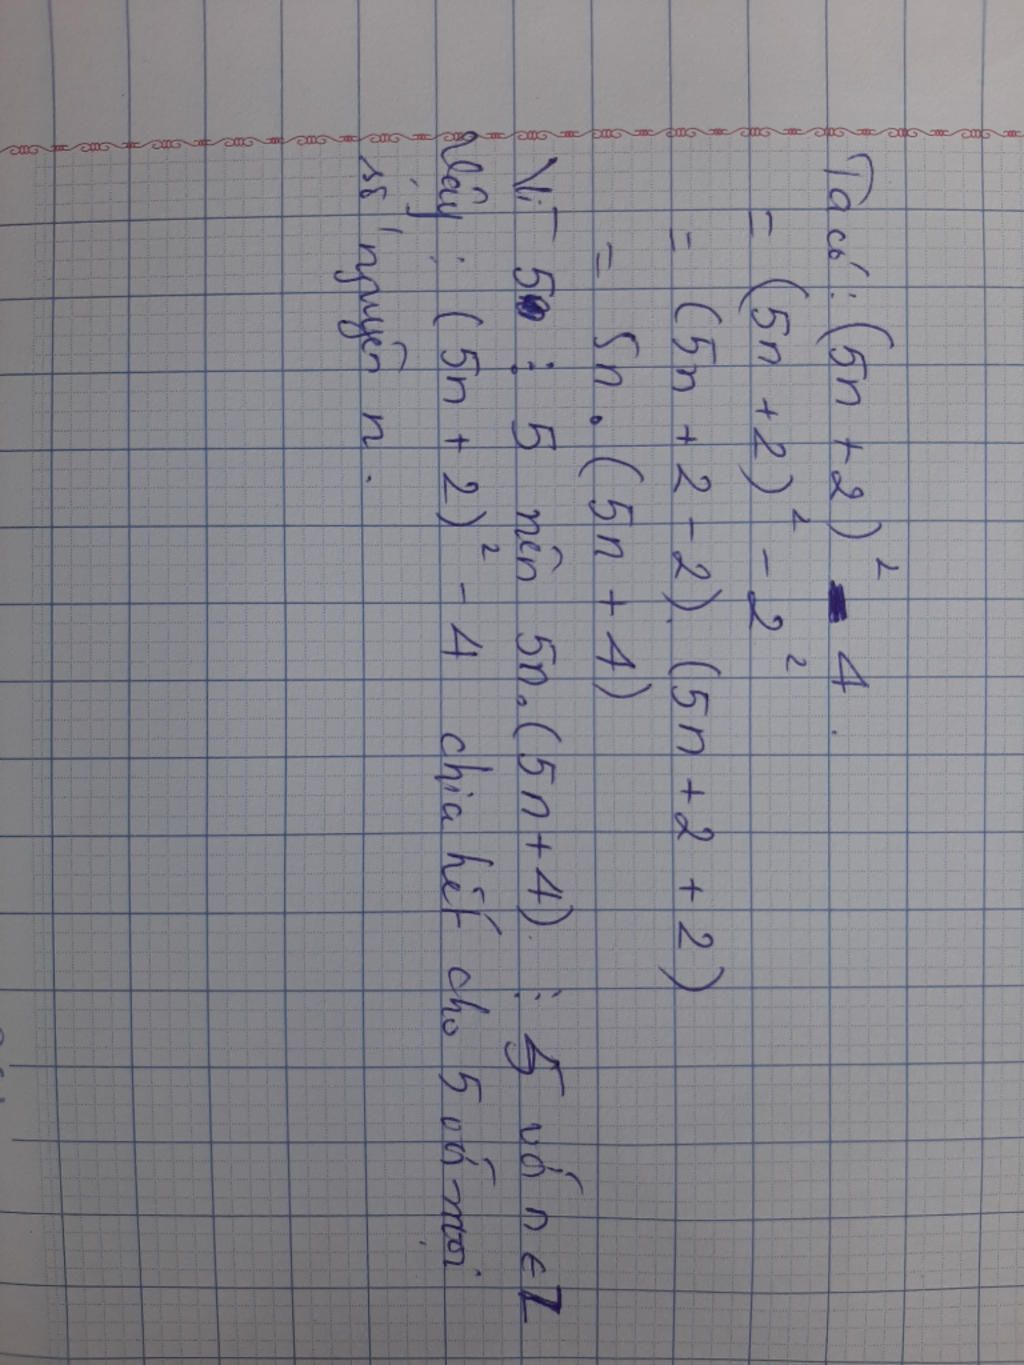 Ta có: (5n + 2)² - 4.
= (5n + 2)² - 2²
= (5n + 2 - 2). (5n + 2 + 2)
= 5n. (5n + 4)
Vì 5 ⋮ 5 nên 5n.(5n + 4) ⋮ 5 với n ∈ Z
Vậy: (5n + 2)² - 4 chia hết cho 5 với mọi
số nguyên n.